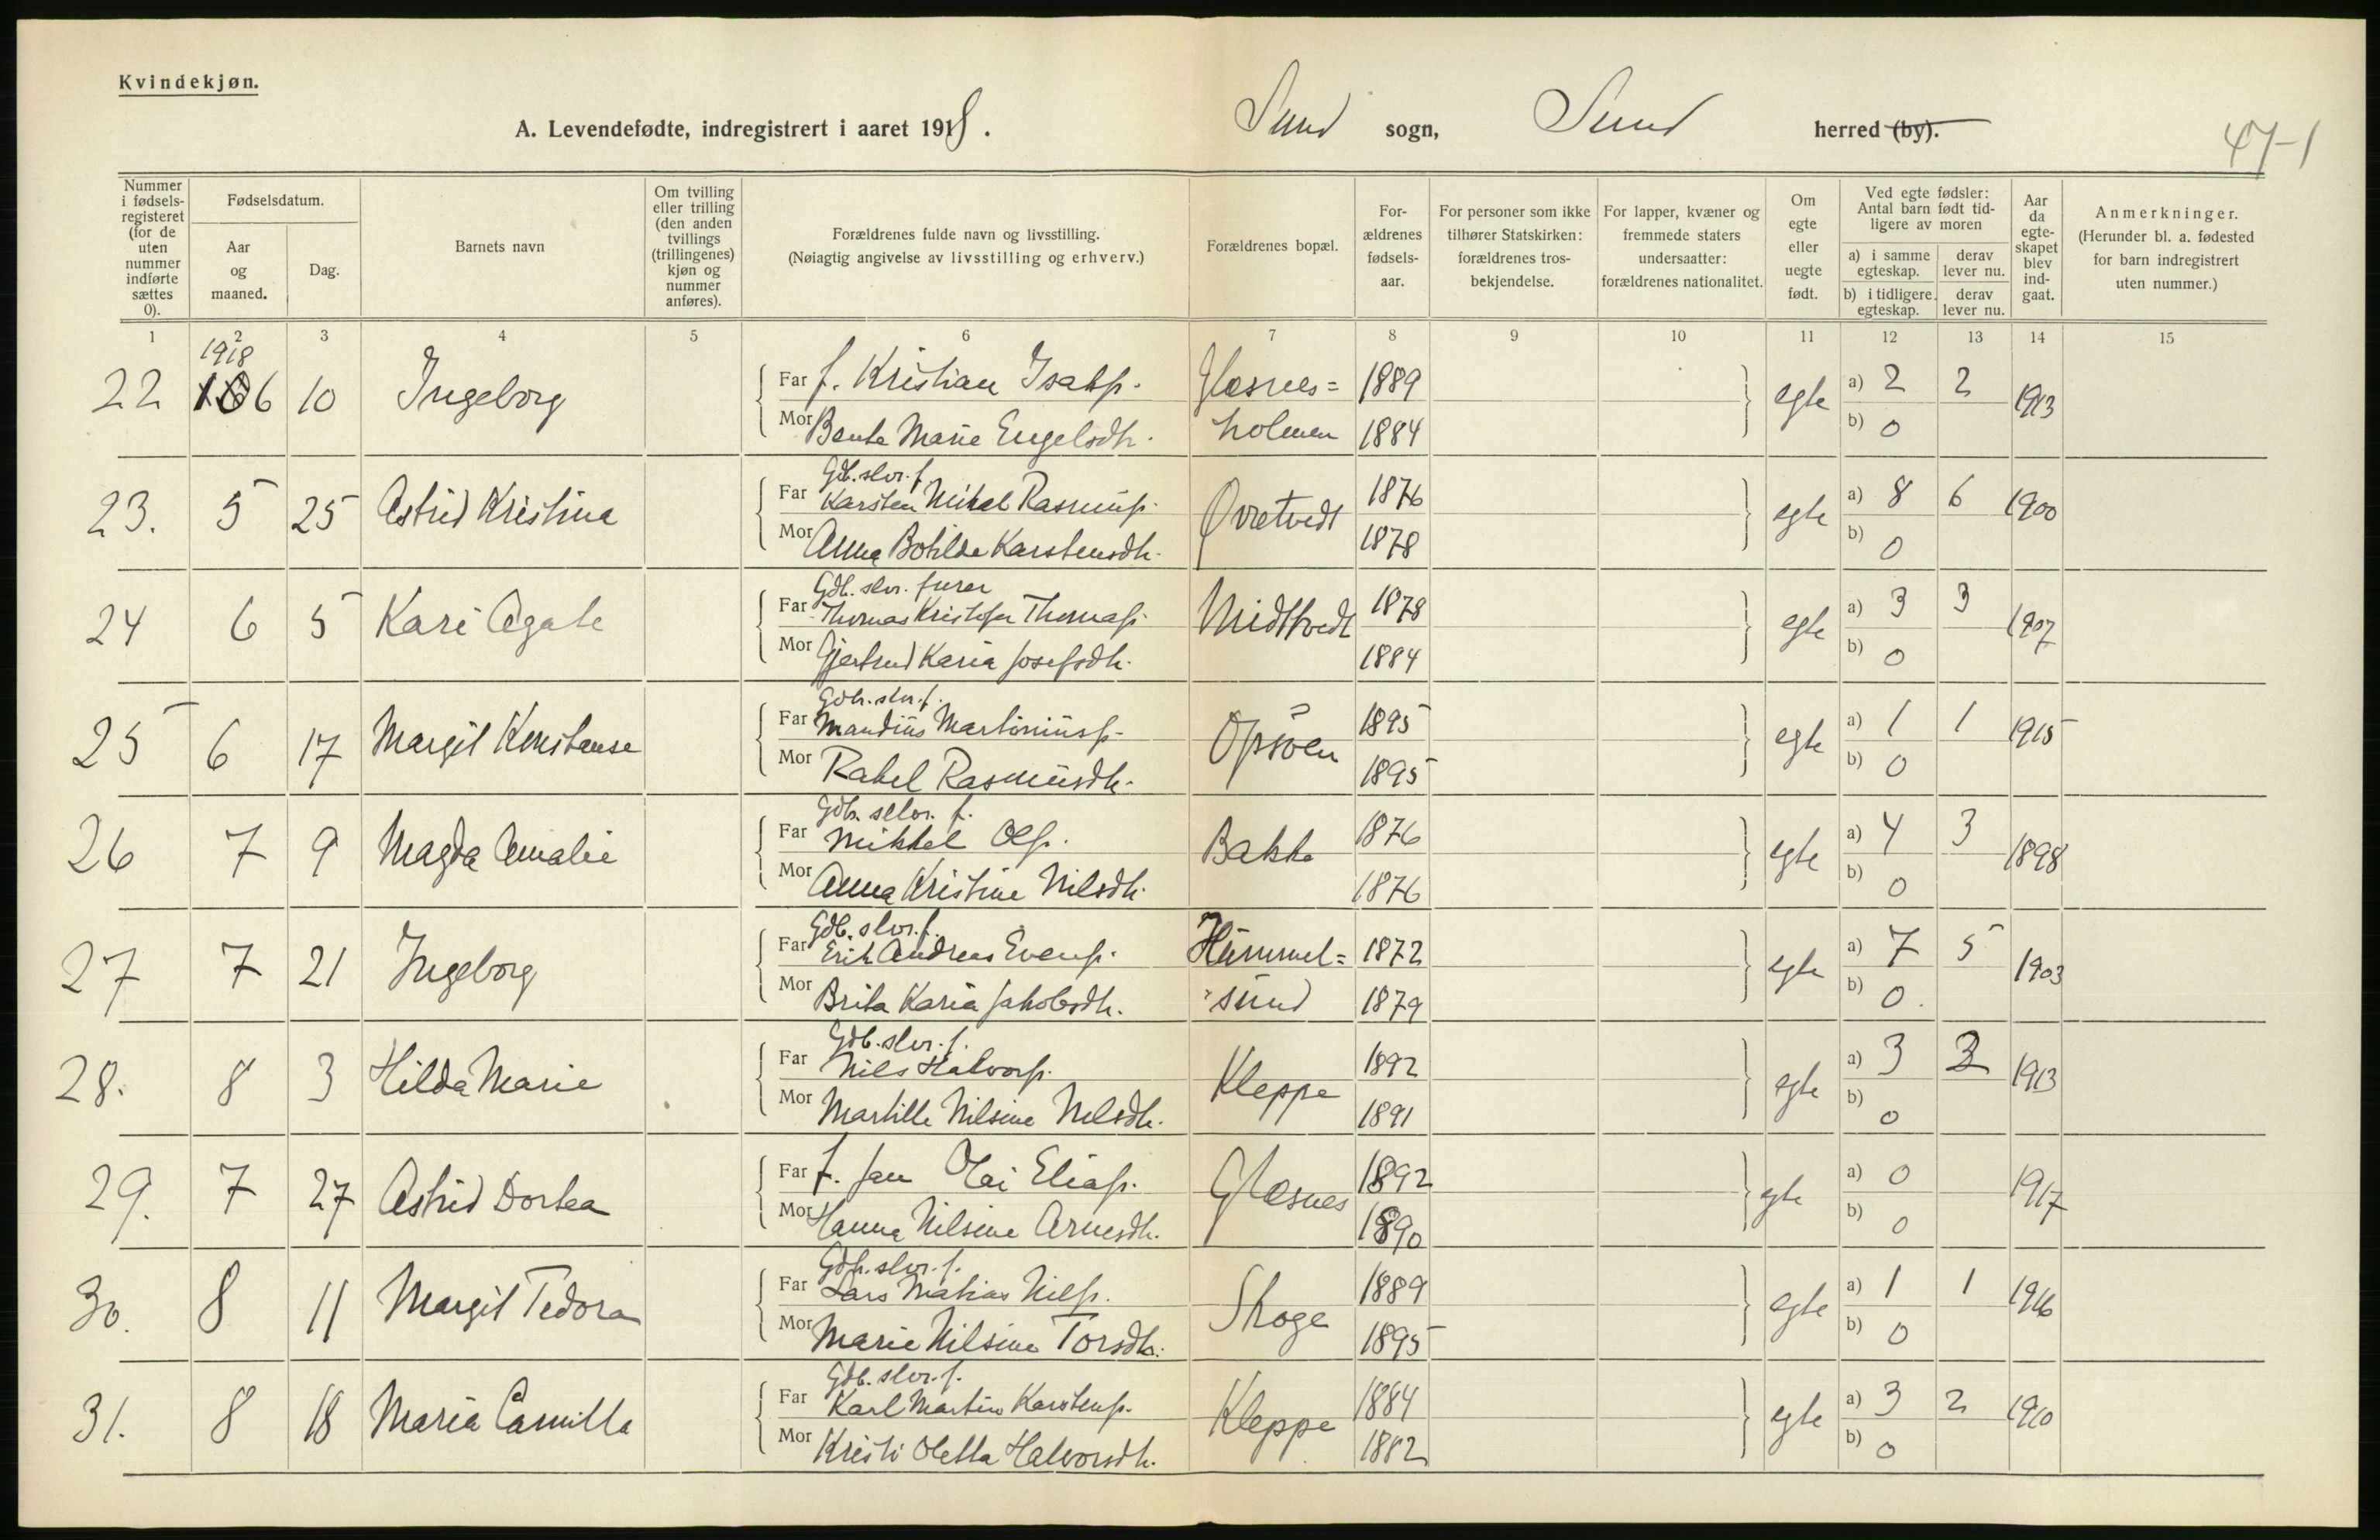 Kvindekjøn.
A. Levendefødte, indregistrert i aaret 1918. Sund sogn, Sund herred (by).
47-1
Nummer i fødsels-registeret (for de uten nummer indførte sættes 0).
Fødselsdatum.
Aar og maaned.
Dag.
Barnets navn
Om tvilling eller trilling (den anden tvillings (trillingenes) kjøn og nummer anføres).
Forældrenes fulde navn og livsstilling.
(Nøiagtig angivelse av livsstilling og erhverv.)
Forældrenes bopæl.
For-ældrenes fødsels-aar.
For personer som ikke tilhører Statskirken: forældrenes tros-bekjendelse.
For lapper, kvæner og fremmede staters undersaatter: forældrenes nationalitet.
Om egte eller uegte født.
Ved egte fødsler: Antal barn født tid-ligere av moren
a) i samme egteskap. derav lever nu.
b) i tidligere egteskap. derav lever nu.
Aar da egte-skapet blev ind-gaat.
Anmerkninger.
(Herunder bl. a. fødested for barn indregistrert uten nummer.)
1 2 3 4 5 6 7 8 9 10 11 12 13 14 15
1918
22 6 10 Ingeborg Far f. Kristian Isaks. Glesnes= 1889 egte a) 2 2 1913
Mor Bente Marie Engelsdtr. holmen 1884 b) 0
Gdb. slvr. f.
23. 5 25 Astrid Kristina Far Karsten Mikal Rasmus. Øvretvedt 1876 egte a) 8 6 1900
Mor Anna Botilde Karstensdtr. 1878 b) 0
Gdb. slvr. furer
24 6 5 Kari Agate Far Thomas Kristofer Thomas. Midttvedt 1878 egte a) 3 3 1907
Mor Gjertrud Karia Josefsdtr. 1884 b) 0
Gdb. slvr. f.
25 6 17 Margit Konstanse Far Mandius Martinius. Opsöen 1895 egte a) 1 1 1915
Mor Rakel Rasmusdtr. 1895 b) 0
Gdb. selvr. f.
26 7 9 Magda Amalie Far Mikkel Ols. Bakke 1876 egte a) 4 3 1898
Mor Anna Kristine Nilsdtr. 1876 b) 0
Gdb. slvr. f.
27 7 21 Ingeborg Far Erik Andreas Evens. Hummel= 1872 egte a) 7 5 1903
Mor Brita Karia Jakobsdtr. sund 1879 b) 0.
Gdb. slvr. f.
28. 8 3 Hilda Marie Far Nils Halvors. Kleppe 1892 egte a) 3 2 1913
Mor Martille Nilsine Nilsdtr. 1891 b) 0
29. 7 27 Astrid Dortea Far f. Jan Olai Elias. Glesnes 1892 egte a) 0 1917
Mor Hanna Nilsine Arnesdtr. 1890 b) 0
Gdb. slvr. f.
30. 8 11 Margit Tedora Far Lars Matias Nils. Skoge 1889 egte a) 1 1 1916
Mor Marie Nilsine Torsdtr. 1895 b) 0
Gdb. slvr. f.
31. 8 18 Maria Camilla Far Karl Martin Karstens. Kleppe 1884 egte a) 3 2 1910
Mor Kristi Oletta Halvorsdtr. 1882 b) 0